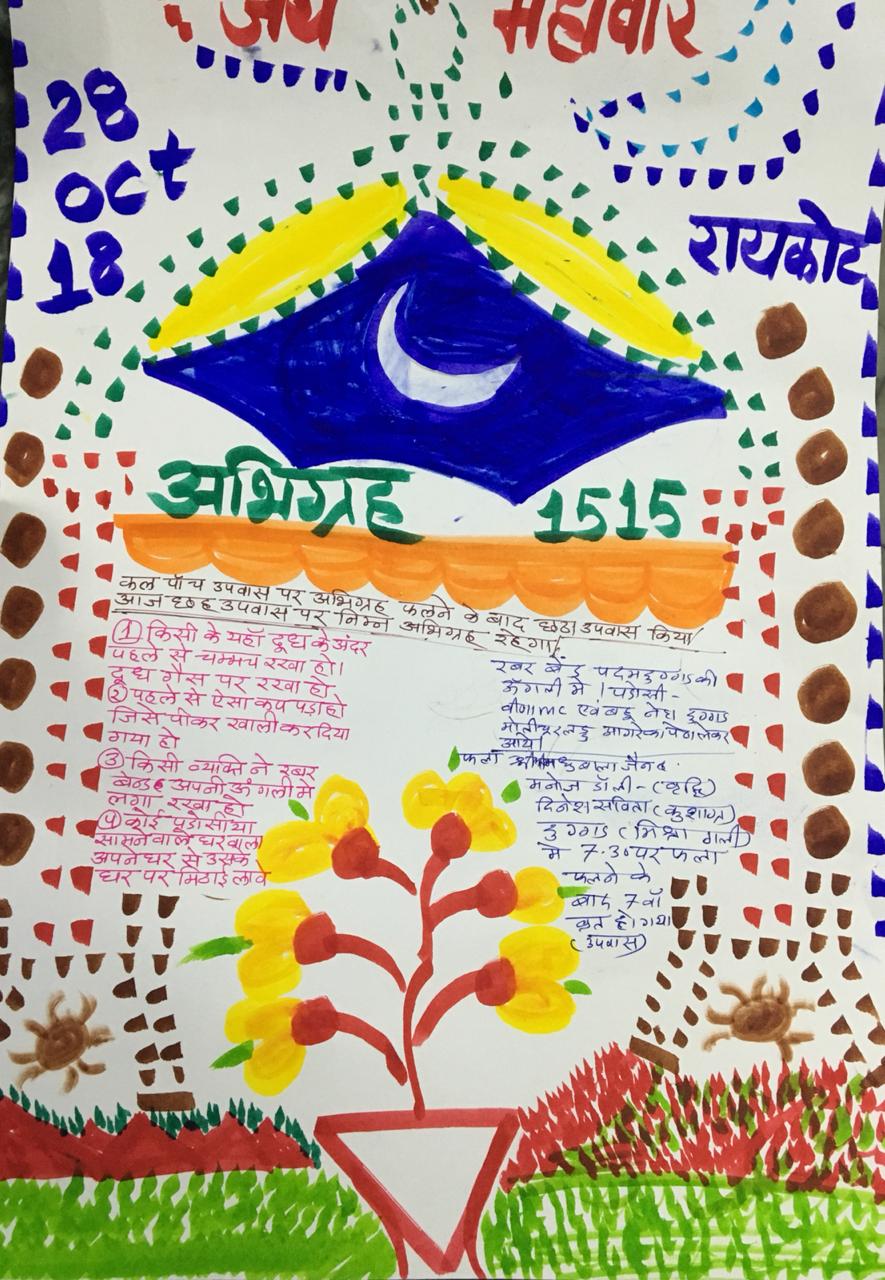 जय महावीर
28
oct
18
रायकोट
अभिग्रह 1515
कल पाँच उपवास पर अभिग्रह फलने के बाद छठा उपवास किया/
आज छह उपवास पर निम्न अभिग्रह रहेगा/
① किसी के यहाँ दूध के अंदर
पहले से चम्मच रखा हो।
दूध गैस पर रखा हो
② पहले से ऐसा कप पड़ा हो
जिसे पीकर खाली कर दिया
गया हो
③ किसी व्यक्ति ने रबर
बेन्ड अपनी ऊंगली मे
लगा रखा हो
④ कोई पड़ोसी या
सामने वाले घर वाला
अपने घर से उसके
घर पर मिठाई लावे
रबर बेंड पदमडुग्गड की
ऊँगली मे । पडोसी -
वीणा MC एवं बहू नेहा डुग्गड
मोतीचूर लड्डू आगरे का पेठा लेकर
आये।
फला जैन
मनोज डॉली - (वृद्दि)
दिनेश सविता (कुशाग्र)
डुग्गड (मिश्रा गली)
मे 7.30 पर फला
फलने के
बाद 7वाँ
व्रत हो गया
(उपवास)